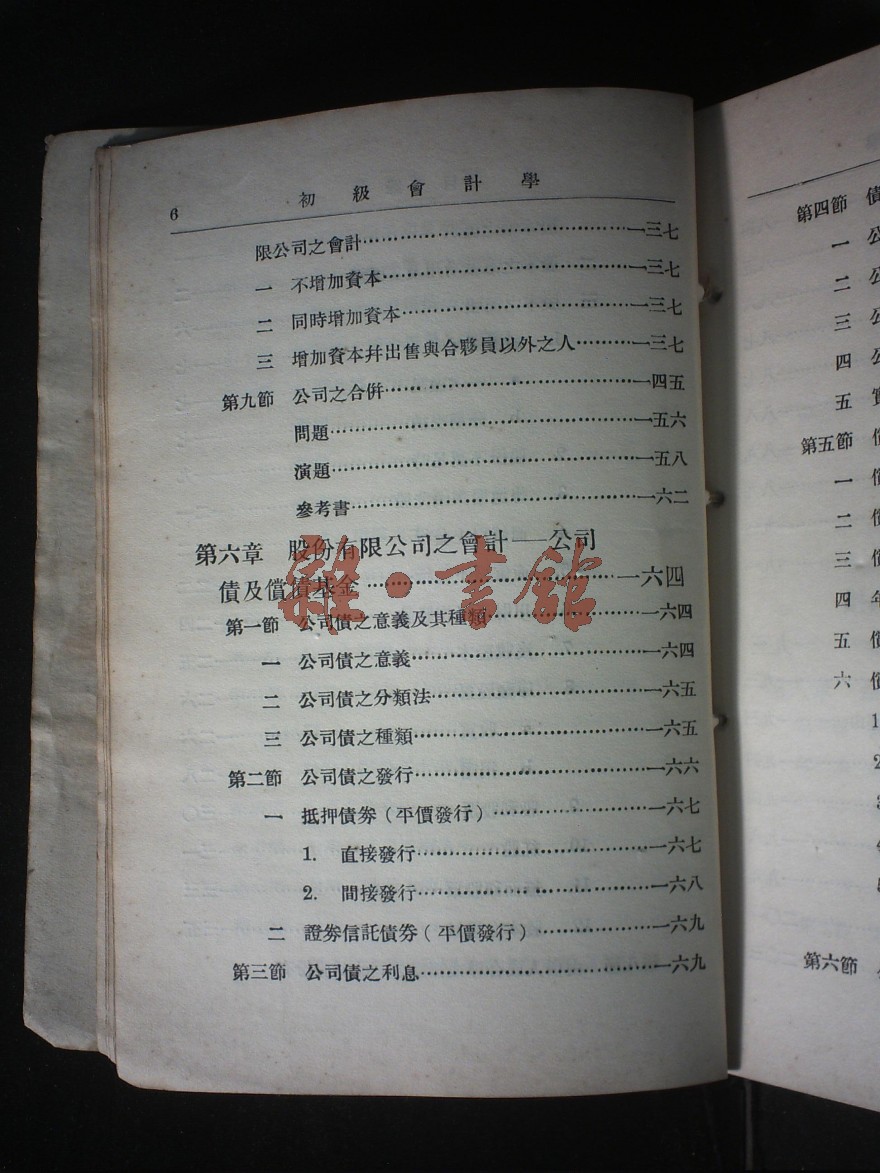 6
初級會計學
限公司之會計……一三七
一 不增加資本……一三七
二 同時增加資本……一三七
三 增加資本幷出售與合夥員以外之人……一三七
第九節 公司之合併……一四五
問題……一五六
演題……一五八
參考書……一六二
第六章 股份有限公司之會計——公司
債及償債基金……一六四
第一節 公司債之意義及其種類……一六四
一 公司債之意義……一六四
二 公司債之分類法……一六五
三 公司債之種類……一六五
第二節 公司債之發行……一六六
一 抵押債券(平價發行)……一六七
1. 直接發行……一六七
2. 間接發行……一六八
二 證券信託債券(平價發行)……一六九
第三節 公司債之利息……一六九
雜·書館
第四節 債
一 公
二 公
三 公
四 公
五
第五節
一 償
二 償
三 償
四 年
五 償
六 償
1
2
第六節